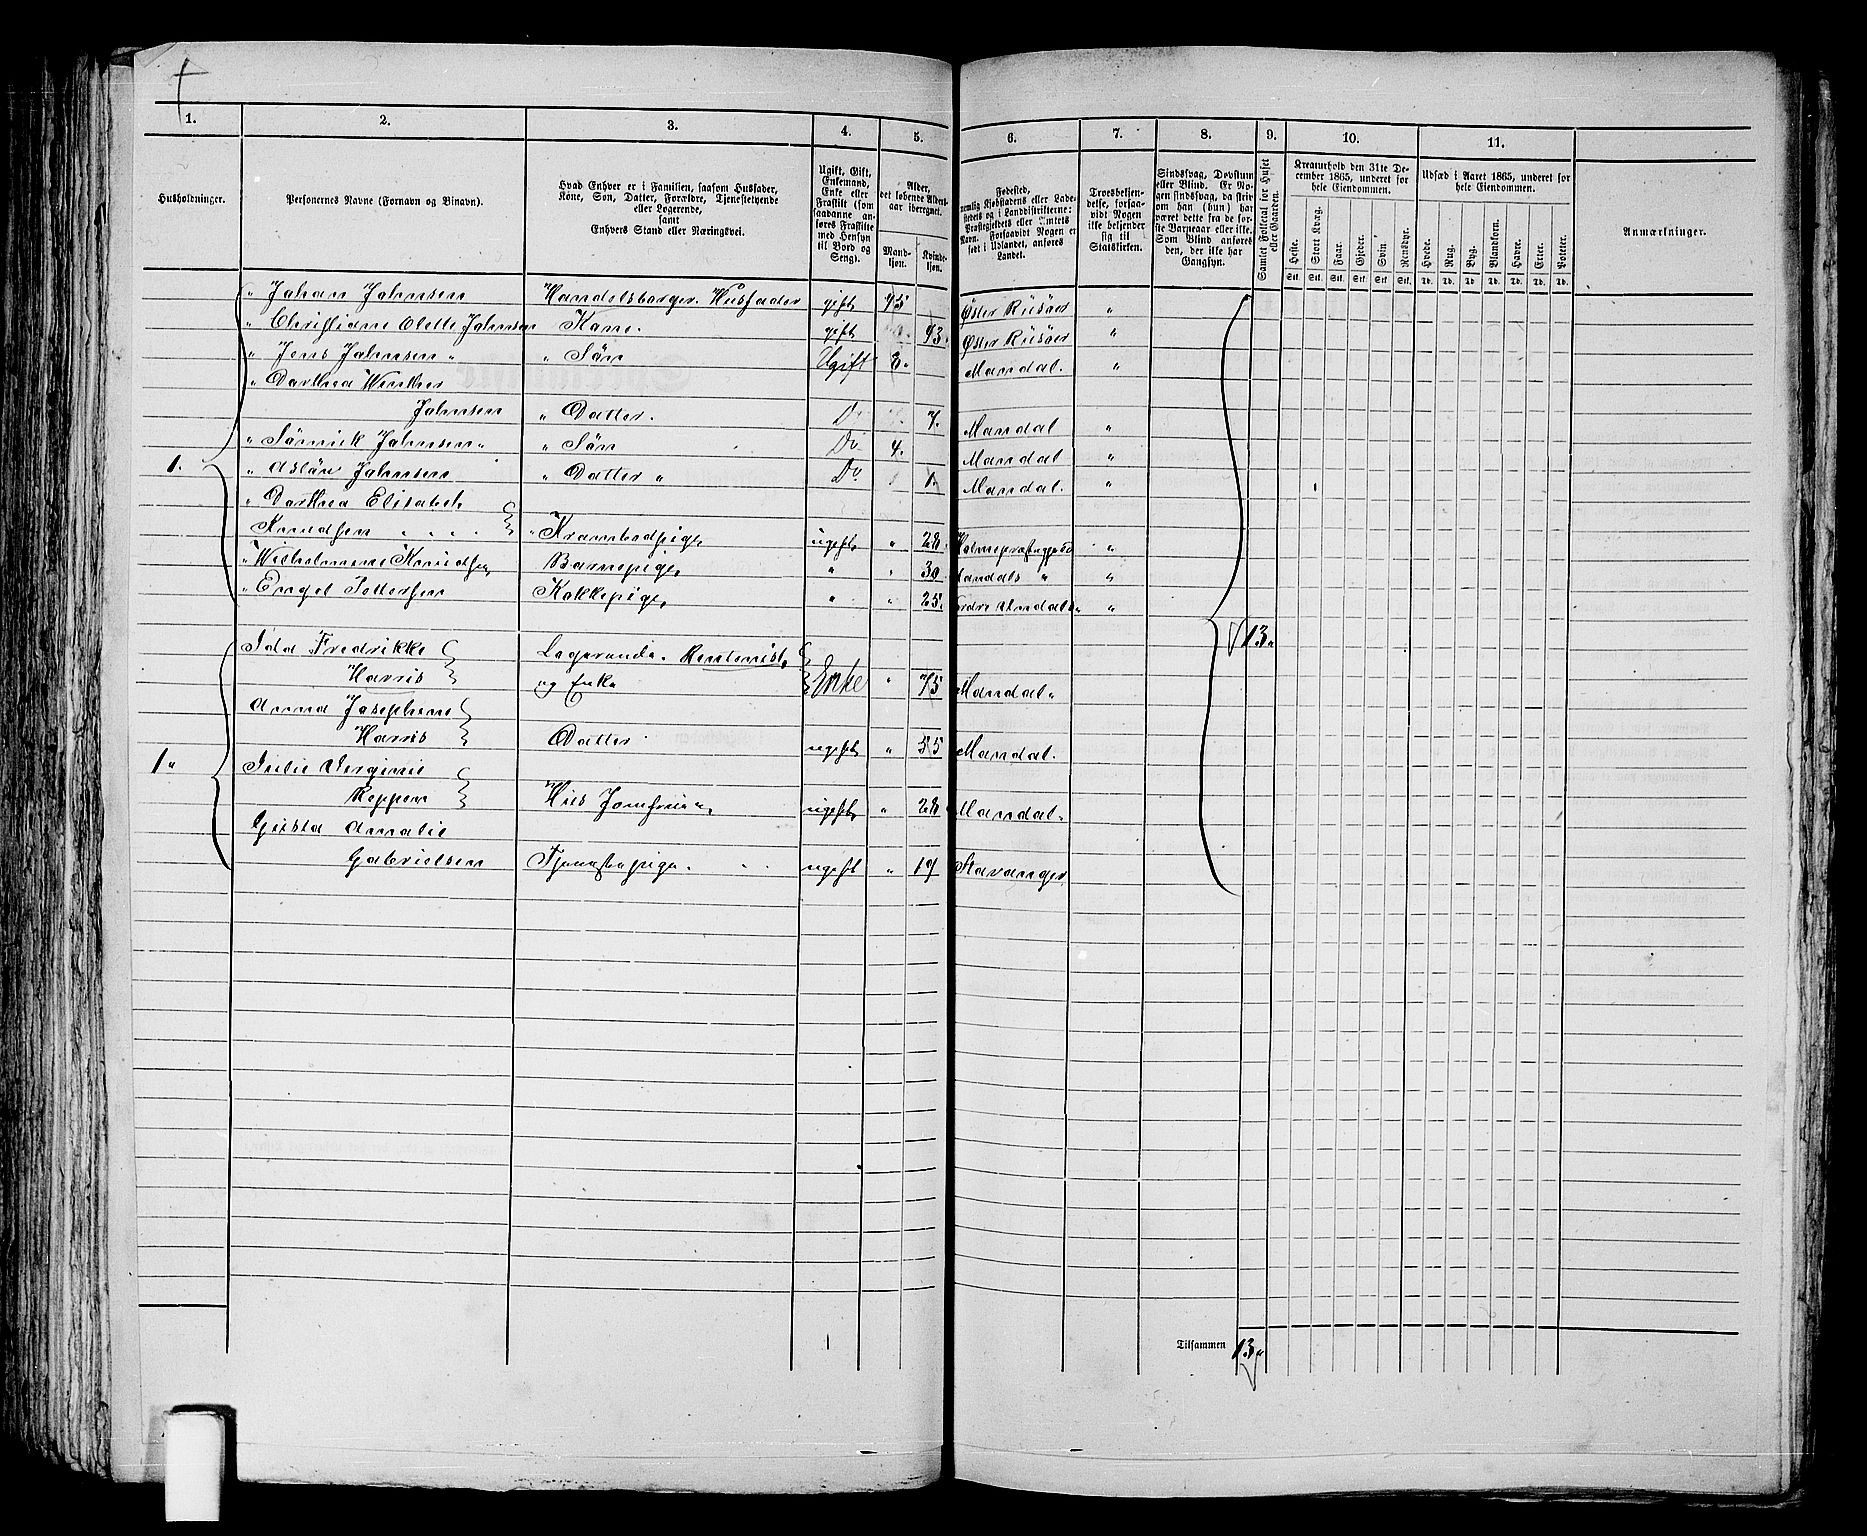 1. 2. 3. 4. 5. 6. 7. 8. 9. 10. 11.
Husholdninger.
Personernes Navne (Fornavn og Binavn).
Hvad Enhver er i Familien, saasom Husfader,
Kone, Søn, Datter, Forældre, Tjenestetyende
eller Logerende,
samt
Enhvers Stand eller Næringsvei.
Ugift, Gift,
Enkemand,
Enke eller
Fraskilt (som
saadanne an-
føres Fraskilte
med Hensyn
til Bord og
Seng).
Alder,
det løbende Alders-
aar iberegnet.
Mand-
kjøn.
Kvinde-
kjøn.
Fødested,
nemlig Kjøbstadens eller Lade-
stedets og i Landdistrikterne:
Præstegjeldets eller Amtets
Navn. Forsaavidt Nogen er
født i Udlandet, anføres
Landet.
Troesbekjen-
delse, forsaa-
vidt Nogen
ikke bekjender
sig til
Statskirken.
Sindssvag, Døvstum
eller Blind. Er No-
gen sindssvag, da skriv
om han (hun) har
været dette fra de for-
ste Barneaar eller ikke.
Som Blind anføres
den, der ikke har
Gangsyn.
Samlet Folketal for Huset
eller Gaarden.
Kreaturhold den 31te De-
cember 1865, underet for
hele Eiendommen.
Heste. Stort Kvæg. Faar. Gjeder. Sviin. Rensdyr.
Stk. Stk. Stk. Stk. Stk. Stk.
Udsæd i Aaret 1865, underet for
hele Eiendommen.
Hvede. Rug. Byg. Blandkorn. Havre. Erter. Poteter.
Td. Td. Td. Td. Td. Td. Td.
Anmærkninger.
" Johan Johnsen Handelsborger. Husfader gift 45 Øster Riisøer "
" Christiane Olette Johnsen Kone. gift 43. Øster Riisøer "
" Jens Johnsen " " Sön Ugift 8. Mandal. "
" Dorthea Winther
Johnsen " Datter. Do 7. Mandal "
" Sörnick Johnsen " " Sön Do 4. Mandal "
1. " Aslöu Johnsen " Datter " Do 1. Mandal. "
" Dorthea Elisabeth
Knudsen " Krambodpige ugift " 28. "
" Wilhelmine Knudsen Barnepige " " 30 "
" Engel Pettersen Kokkepige " " 25. "
13.
Ida Fredrikke Logerende. Rentenist,
Harris og Enke Enke " 75 Mandal "
Anna Josephine
Harris Datter ugift " 55 Mandal.
1" Julie Virginie
Reppen Huus Jomfrue ugift " 28 Mandal.
Gusta Amalie
Gabrielsen Tjenestepige. ugift " 17 Stavanger
Tilsammen 13